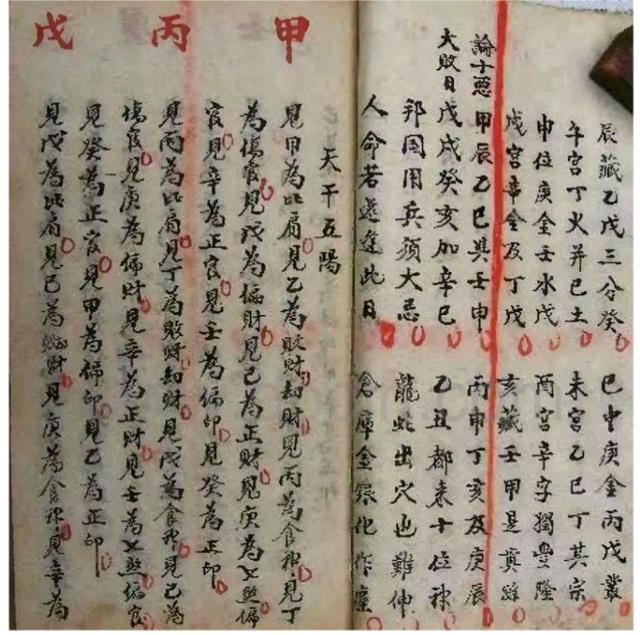 辰藏乙戊三分癸 巳中庚金丙戊叢
午宮丁火并己土 未宮乙己丁其宗
申位庚金壬水戊 酉宮辛字獨豐隆
戌宮辛金及丁戊 亥藏壬甲是真踪
論十惡
大敗日
甲辰乙巳與壬申 丙申丁亥及庚辰
戊戌癸亥加辛巳 乙丑都来十位神
邦国用兵須大忌 龍蛇出穴也難伸
人命若還逢此日 倉庫金銀化作塵
天干五陽
甲
見甲為比肩見乙為敗財刼財見丙為食神見丁
為傷官見戊為偏財見己為正財見庚為七煞偏
官見辛為正官見壬為偏印見癸為正印
丙
見丙為比肩見丁為敗財刼財見戊為食神見己為
傷官見庚為偏財見辛為正財見壬為七煞偏官
見癸為正官見甲為偏印見乙為正印
戊
見戊為比肩見己為財見庚為食神見辛為